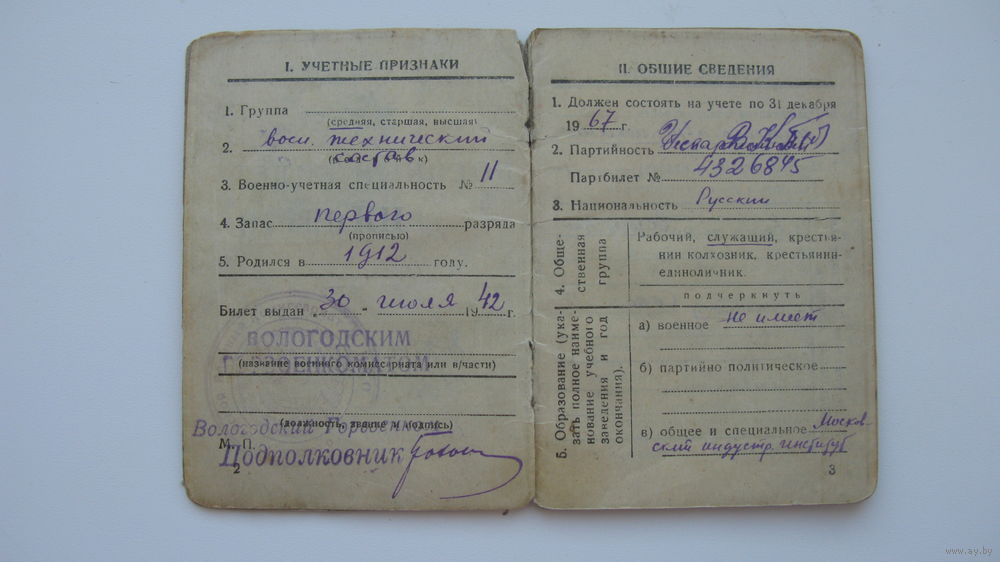 I. УЧЕТНЫЕ ПРИЗНАКИ
1. Группа
(средняя, старшая, высшая)
2. воен. технический
состав
3. Военно-учетная специальность № 11
4. Запас первого разряда
(прописью)
5. Родился в 1912 году.
Билет выдан „30„ июля 1942 г.
ВОЛОГОДСКИМ
ГОРВОЕНКОМАТОМ
(название военного комиссариата или в/части)
(должность, звание и подпись)
Вологодский Горвоенком
М. П.
Подполковник
2
II. ОБЩИЕ СВЕДЕНИЯ
1. Должен состоять на учете по 31 декабря
1967 г.
2. Партийность
Партбилет № 4326845
3. Национальность Русский
4. Общественная группа
Рабочий, служащий, крестья-
нин колхозник, крестьянин-
единоличник.
подчеркнуть
5. Образование (ука-
зать полное наиме-
нование учебного
заведения и год
окончания).
а) военное не имеет
б) партийно политическое
в) общее и специальное Москов-
ский индустр. институт
3
www.ay.by